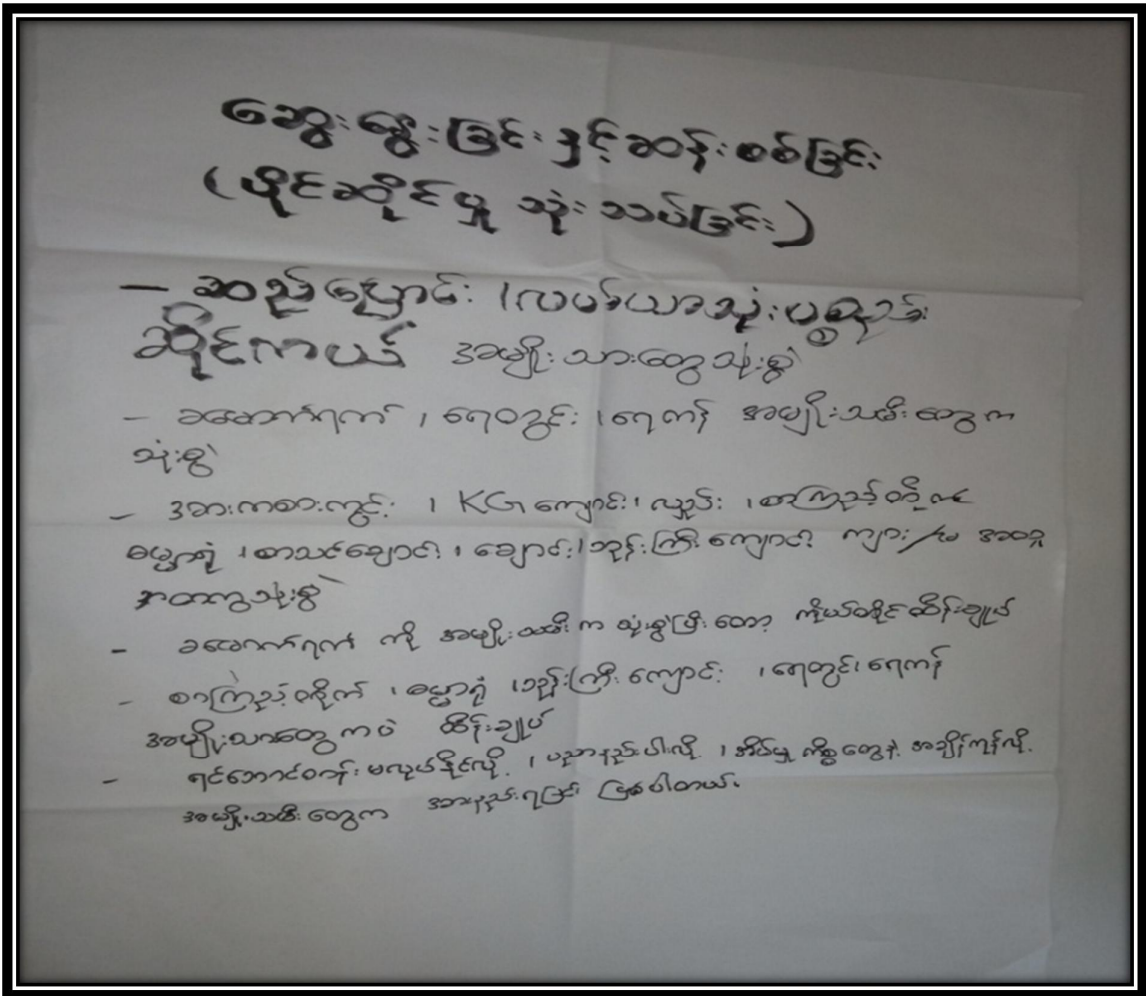 ဆွေးနွေးခြင်းနှင့်ဆန်းစစ်ခြင်း
(ပိုင်ဆိုင်မှု သုံးသပ်ခြင်း)
– ဆည်မြောင်း ၊လယ်ယာသုံးပစ္စည်း
ဆိုင်ကယ် အမျိုးသားတွေသုံးစွဲ
– ခမောက်ရက် ၊ ရေတွင်း ၊ရေကန် အမျိုးသမီးတွေက
သုံးစွဲ
– အားကစားကွင်း ၊ KG ကျောင်း၊ လှည်း ၊စာကြည့်တိုက်
ဓမ္မာရုံ ၊စာသင်ကျောင်း ၊ ချောင်း၊ဘုန်းကြီးကျောင်း ကျား/မ
အတူတကွသုံးစွဲ
– ခမောက်ရက် ကို အမျိုးသမီးက သုံးစွဲပြီးတော့ ကိုယ်တိုင်ထိန်းချုပ်
– စာကြည့်တိုက် ၊ဓမ္မာရုံ ၊ဘုန်းကြီးကျောင်း ၊ရေတွင်း၊ရေကန်
အမျိုးသားတွေကပဲ ထိန်းချုပ်
– ရင်ဘောင်တန်းမလုပ်နိုင်လို့ ၊ပညာနည်းပါးလို့ ၊အိမ်မှုကိစ္စတွေနဲ့ အချိန်ကုန်လို့
အမျိုးသမီးတွေက အားနည်းရခြင်း ဖြစ်ပါတယ်၊